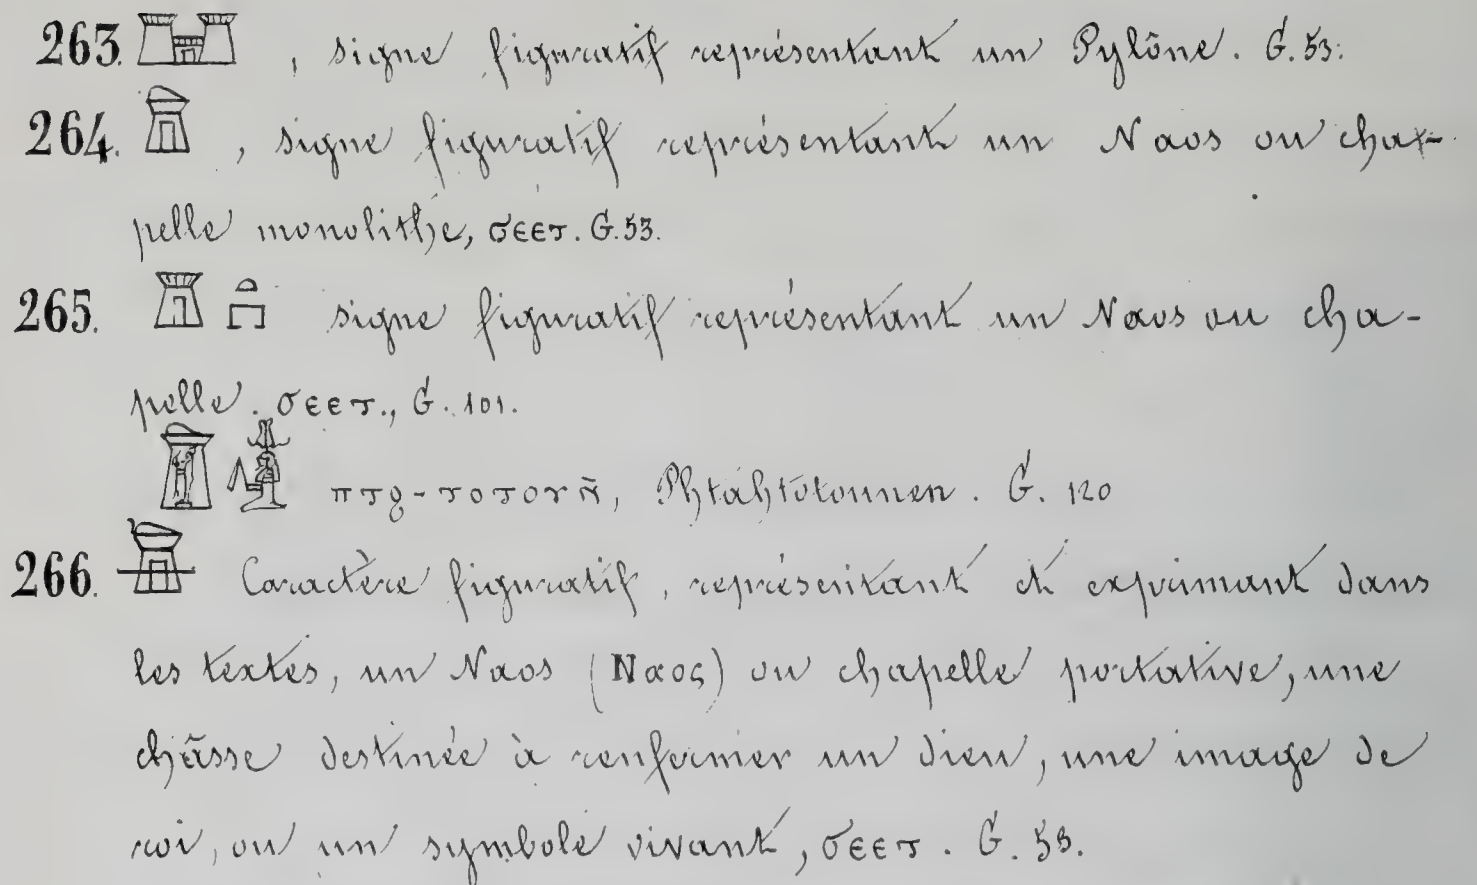 263. , signe figuratif représentant un Pylône. G. 53.
264. , signe figuratif représentant un Naos ou cha-
pelle monolithe, ϭⲉⲉⲧ. G. 53.
265. signe figuratif représentant un Naos ou cha-
pelle. ϭⲉⲉⲧ., G. 101.
ⲡⲧϩ-ⲧⲟⲧⲟⲩⲛ̄, Phtahtotounen. G. 120
266. Caractère figuratif, représentant et exprimant dans
les textes, un Naos (Ναος) ou chapelle portative, une
châsse destinée à renfermer un dieu, une image de
roi, ou un symbole vivant, ϭⲉⲉⲧ. G. 53.